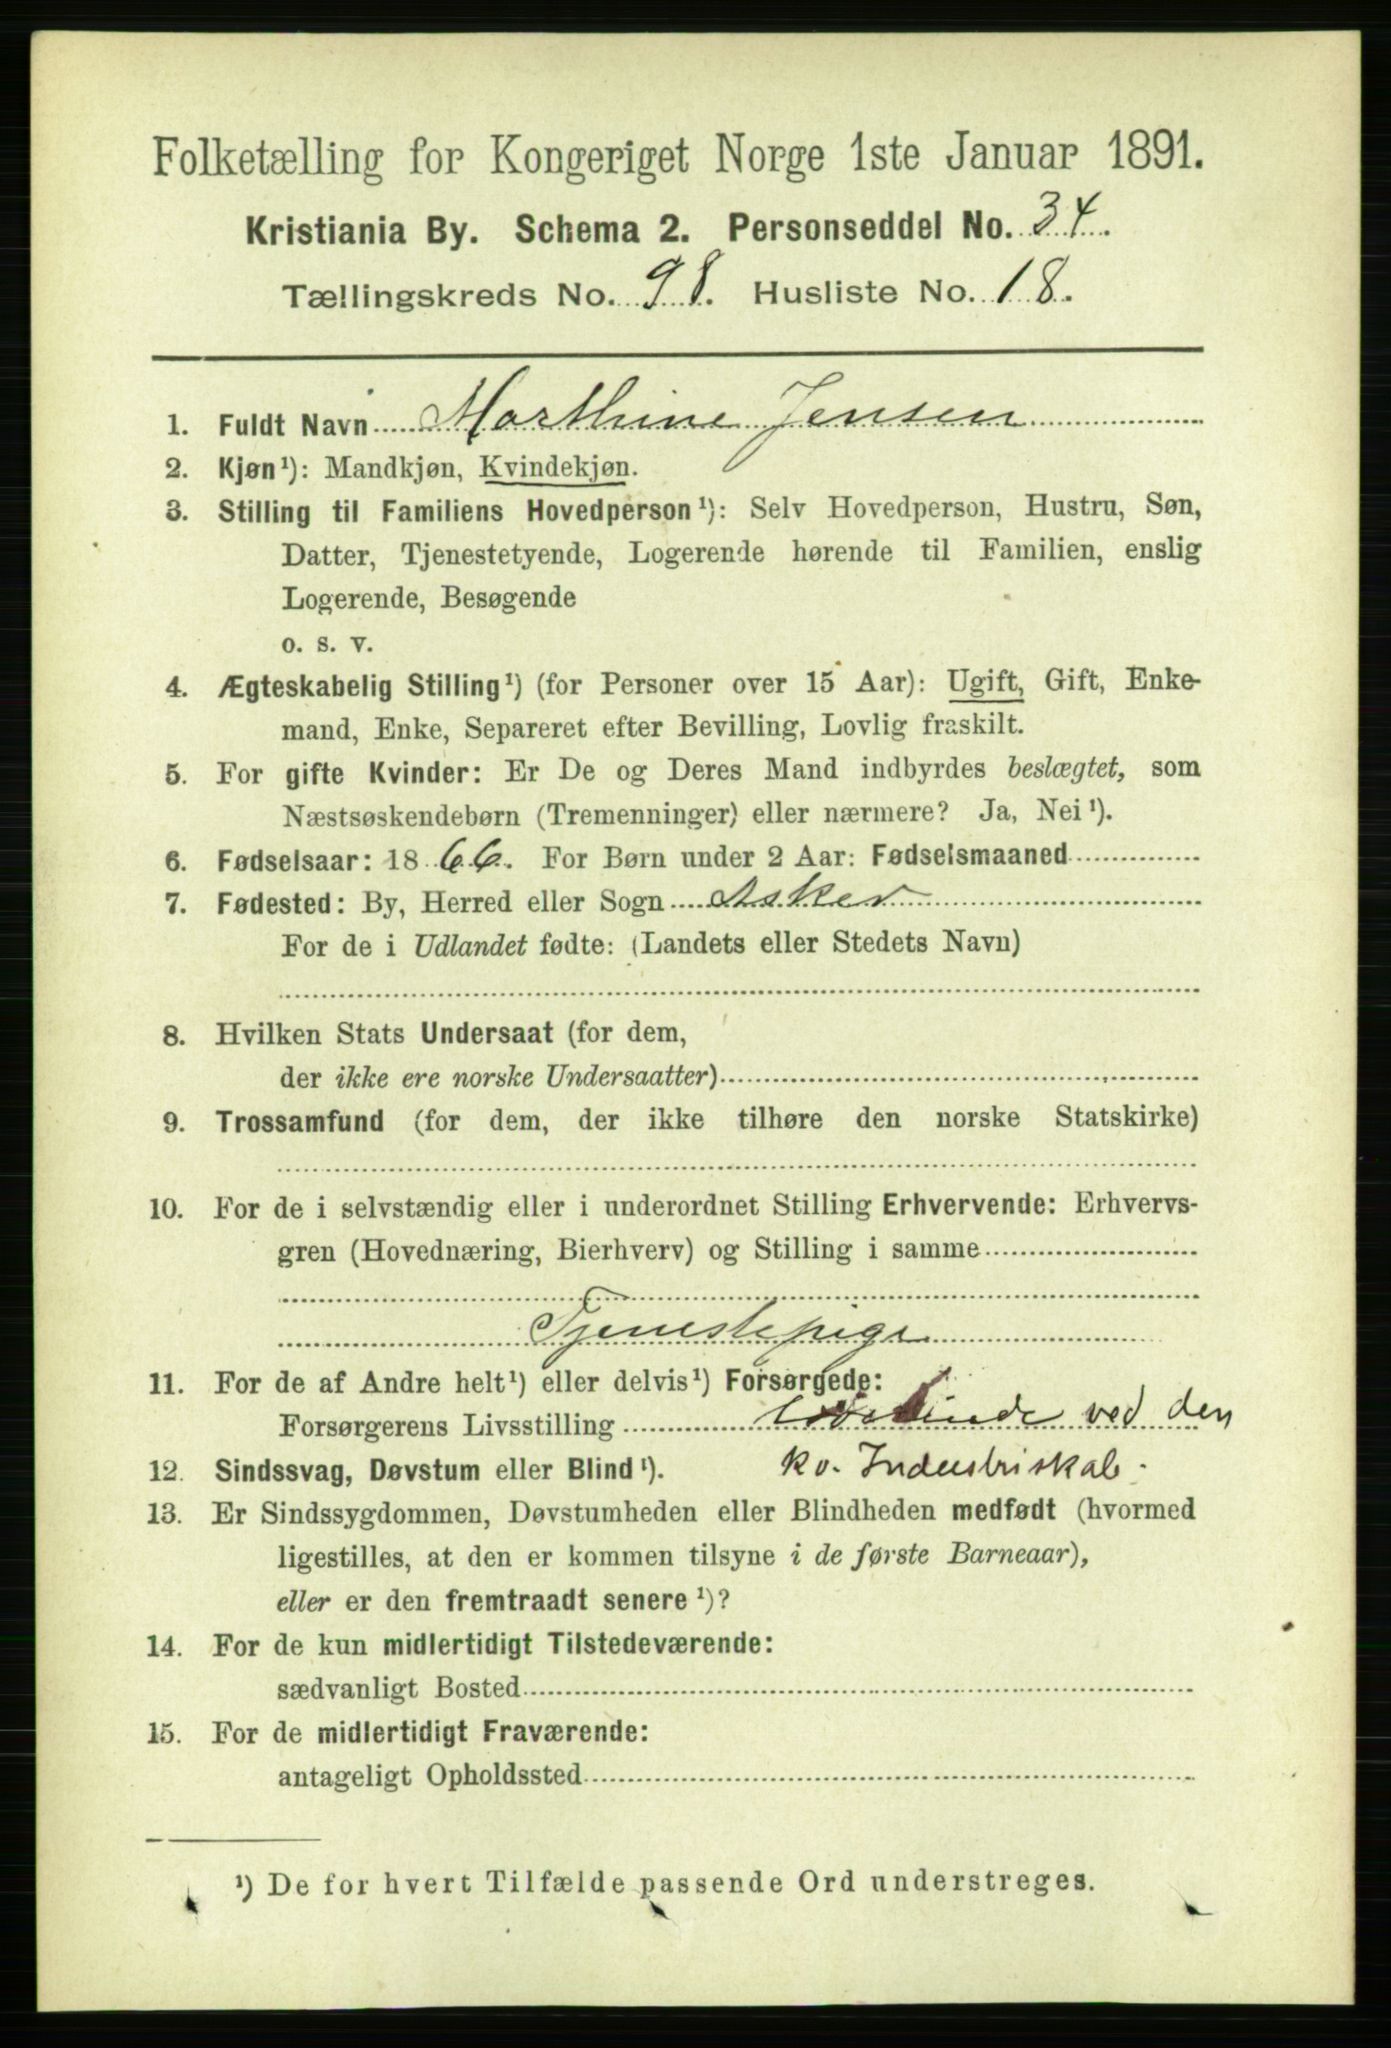 Folketælling for Kongeriget Norge 1ste Januar 1891.
Kristiania By. Schema 2. Personseddel No. 34.
Tællingskreds No. 98. Husliste No. 18.
1. Fuldt Navn Marthine Jensen
2. Kjøn¹): Mandkjøn, Kvindekjøn.
3. Stilling til Familiens Hovedperson¹): Selv Hovedperson, Hustru, Søn,
Datter, Tjenestetyende, Logerende hørende til Familien, enslig
Logerende, Besøgende
o. s. v.
4. Ægteskabelig Stilling¹) (for Personer over 15 Aar): Ugift, Gift, Enke-
mand, Enke, Separeret efter Bevilling, Lovlig fraskilt.
5. For gifte Kvinder: Er De og Deres Mand indbyrdes beslægtet, som
Næstsøskendebørn (Tremenninger) eller nærmere? Ja, Nei¹).
6. Fødselsaar: 1866. For Børn under 2 Aar: Fødselsmaaned
7. Fødested: By, Herred eller Sogn Asker
For de i Udlandet fødte: (Landets eller Stedets Navn)
8. Hvilken Stats Undersaat (for dem,
der ikke ere norske Undersaatter)
9. Trossamfund (for dem, der ikke tilhøre den norske Statskirke)
10. For de i selvstændig eller i underordnet Stilling Erhvervende: Erhvervs-
gren (Hovednæring, Bierhverv) og Stilling i samme
Tjenestepige
11. For de af Andre helt¹) eller delvis¹) Forsørgede:
Forsørgerens Livsstilling ved den
12. Sindssvag, Døvstum eller Blind¹). kv. Industriskole.
13. Er Sindssygdommen, Døvstumheden eller Blindheden medfødt (hvormed
ligestilles, at den er kommen tilsyne i de første Barneaar),
eller er den fremtraadt senere¹)?
14. For de kun midlertidigt Tilstedeværende:
sædvanligt Bosted
15. For de midlertidigt Fraværende:
antageligt Opholdssted
¹) De for hvert Tilfælde passende Ord understreges.